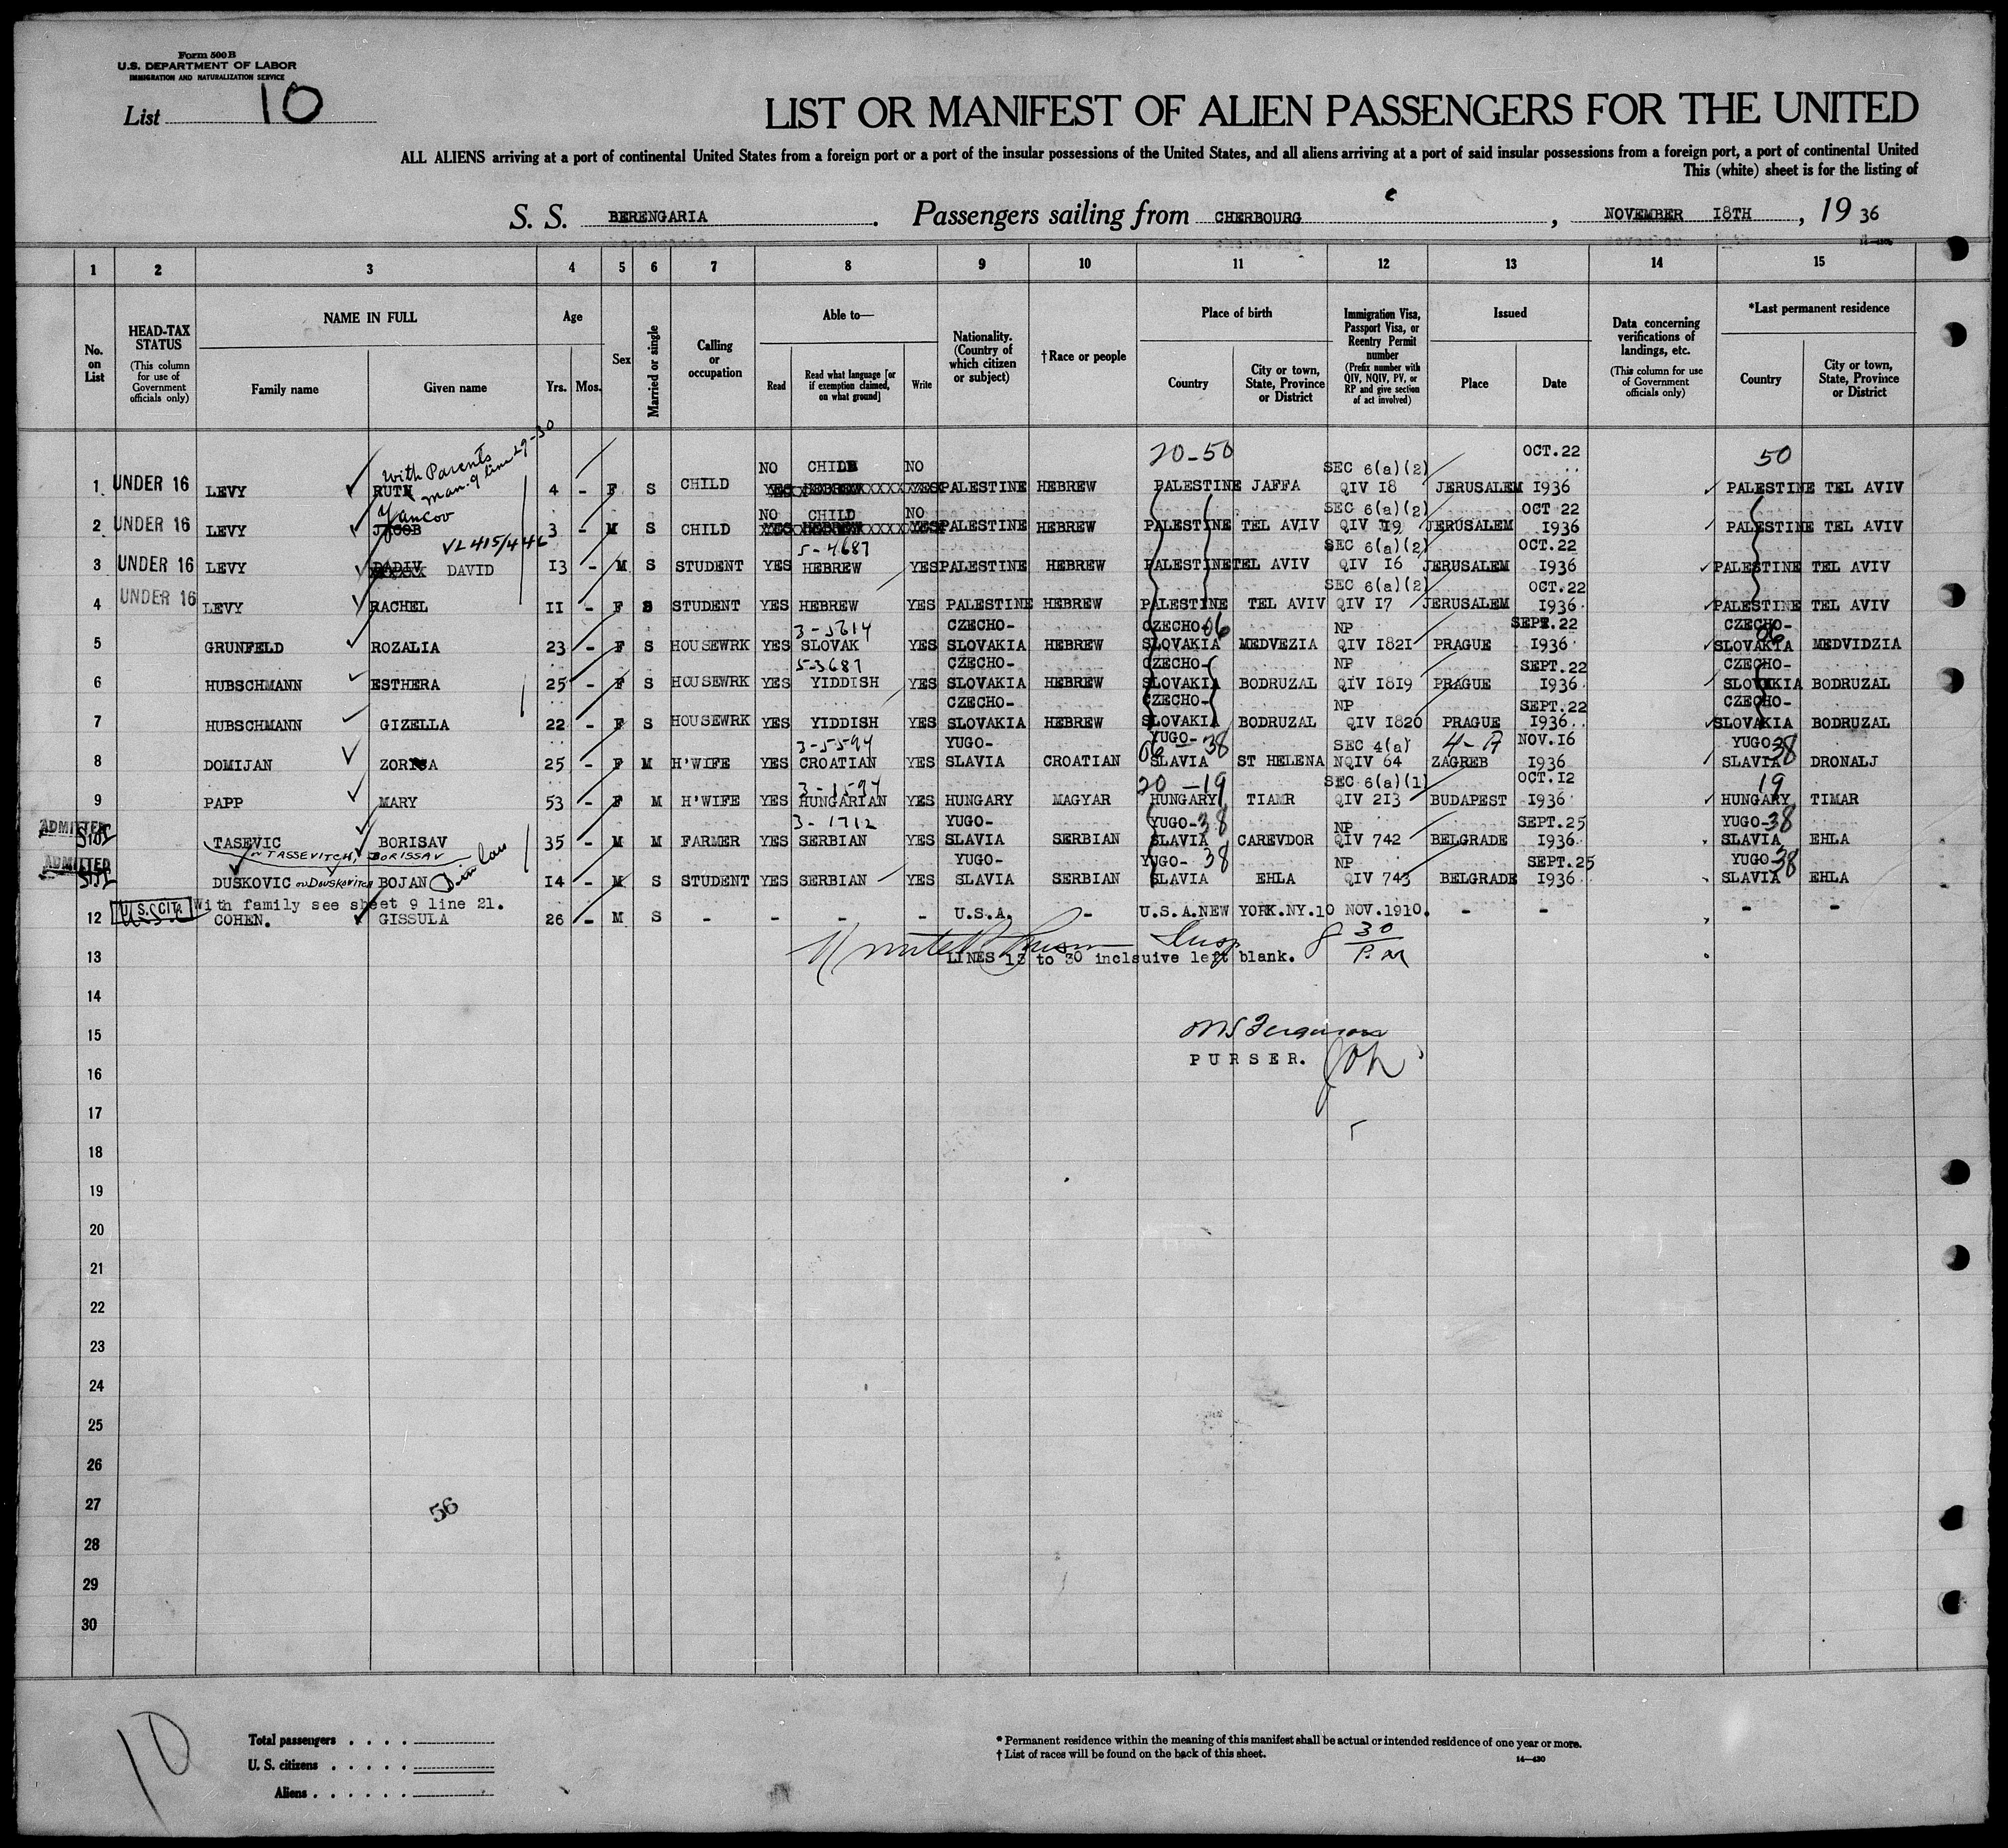 Form 500 B
U.S. DEPARTMENT OF LABOR
IMMIGRATION AND NATURALIZATION SERVICE
List 10
LIST OR MANIFEST OF ALIEN PASSENGERS FOR THE UNITED
ALL ALIENS arriving at a port of continental United States from a foreign port or a port of the insular possessions of the United States, and all aliens arriving at a port of said insular possessions from a foreign port, a port of continental United
This (white) sheet is for the listing of
S. S. BERENGARIA. Passengers sailing from CHERBOURG, NOVEMBER 18TH, 1936
1 2 3 4 5 6 7 8 9 10 11 12 13 14 15
No. on List
HEAD-TAX STATUS
(This column for use of Government officials only)
NAME IN FULL
Family name
Given name
Age
Yrs. Mos.
Sex
Married or single
Calling or occupation
Able to—
Read
Read what language [or if exemption claimed, on what ground]
Write
Nationality. (Country of which citizen or subject)
†Race or people
Place of birth
Country
City or town, State, Province or District
Immigration Visa, Passport Visa, or Reentry Permit number
(Prefix number with QIV, NQIV, PV, or RP and give section of act involved)
Issued
Place
Date
Data concerning verifications of landings, etc.
(This column for use of Government officials only)
*Last permanent residence
Country
City or town, State, Province or District
With Parents man. 9 line 29-30
20-50 OCT.22 50
NO CHILD NO SEC 6(a)(2)
1 UNDER 16 LEVY RUTH 4 - F S CHILD YES HEBREW YES PALESTINE HEBREW PALESTINE JAFFA QIV 18 JERUSALEM 1936 PALESTINE TEL AVIV
Yancov NO CHILD NO SEC 6(a)(2) OCT 22
2 UNDER 16 LEVY JACOB 3 - M S CHILD YES HEBREW YES PALESTINE HEBREW PALESTINE TEL AVIV QIV 19 JERUSALEM 1936 PALESTINE TEL AVIV
VL 415/446 5-4687 SEC 6(a)(2) OCT.22
3 UNDER 16 LEVY DAVID 13 - M S STUDENT YES HEBREW YES PALESTINE HEBREW PALESTINE TEL AVIV QIV 16 JERUSALEM 1936 PALESTINE TEL AVIV
SEC 6(a)(2) OCT.22
4 UNDER 16 LEVY RACHEL 11 - F S STUDENT YES HEBREW YES PALESTINE HEBREW PALESTINE TEL AVIV QIV 17 JERUSALEM 1936 PALESTINE TEL AVIV
3-5614 CZECHO- CZECHO- 06 NP SEPT.22 CZECHO- 06
5 GRUNFELD ROZALIA 23 - F S HOUSEWRK YES SLOVAK YES SLOVAKIA HEBREW SLOVAKIA MEDVEZIA QIV 1821 PRAGUE 1936 SLOVAKIA MEDVIDZIA
5-3687 CZECHO- CZECHO- NP SEPT.22 CZECHO-
6 HUBSCHMANN ESTHERA 25 - F S HOUSEWRK YES YIDDISH YES SLOVAKIA HEBREW SLOVAKIA BODRUZAL QIV 1819 PRAGUE 1936 SLOVAKIA BODRUZAL
CZECHO- CZECHO- NP SEPT.22 CZECHO-
7 HUBSCHMANN GIZELLA 22 - F S HOUSEWRK YES YIDDISH YES SLOVAKIA HEBREW SLOVAKIA BODRUZAL QIV 1820 PRAGUE 1936 SLOVAKIA BODRUZAL
3-5594 YUGO- YUGO- 38 SEC 4(a) 4-A NOV.16 YUGO- 38
8 DOMIJAN ZORISA 25 - F M H'WIFE YES CROATIAN YES SLAVIA CROATIAN 06 SLAVIA ST HELENA NQIV 64 ZAGREB 1936 SLAVIA DRONALJ
3-1594 20-19 SEC 6(a)(1) OCT.12 19
9 PAPP MARY 53 - F M H'WIFE YES HUNGARIAN YES HUNGARY MAGYAR HUNGARY TIAMR QIV 213 BUDAPEST 1936 HUNGARY TIMAR
ADMITTED 3-1712 YUGO- YUGO- 38 NP SEPT.25 YUGO- 38
TASEVIC BORISAV 35 - M M FARMER YES SERBIAN YES SLAVIA SERBIAN SLAVIA CAREVDOR QIV 742 BELGRADE 1936 SLAVIA EHLA
or TASSEVITCH, BORISSAV
ADMITTED YUGO- YUGO- 38 NP SEPT.25 YUGO- 38
DUSKOVIC or Douskovitch BOJAN 14 - M S STUDENT YES SERBIAN YES SLAVIA SERBIAN SLAVIA EHLA QIV 743 BELGRADE 1936 SLAVIA EHLA
U.S. CIT. With family see sheet 9 line 21.
12 COHEN. GISSULA 26 - M S - - - - U.S.A. - U.S.A. NEW YORK.NY.10 NOV.1910. - - - -
8 30 P.M
13 LINES 13 to 30 inclsuive left blank.
14
15
PURSER.
16
17
18
19
20
21
22
23
24
25
26
27
56
28
29
30
10
Total passengers
U. S. citizens
Aliens
* Permanent residence within the meaning of this manifest shall be actual or intended residence of one year or more.
† List of races will be found on the back of this sheet.
14—430